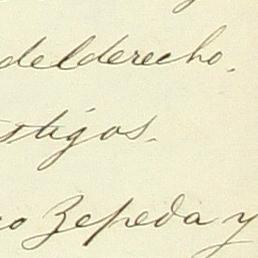 del derecho.
stigos.
co Zepeda y